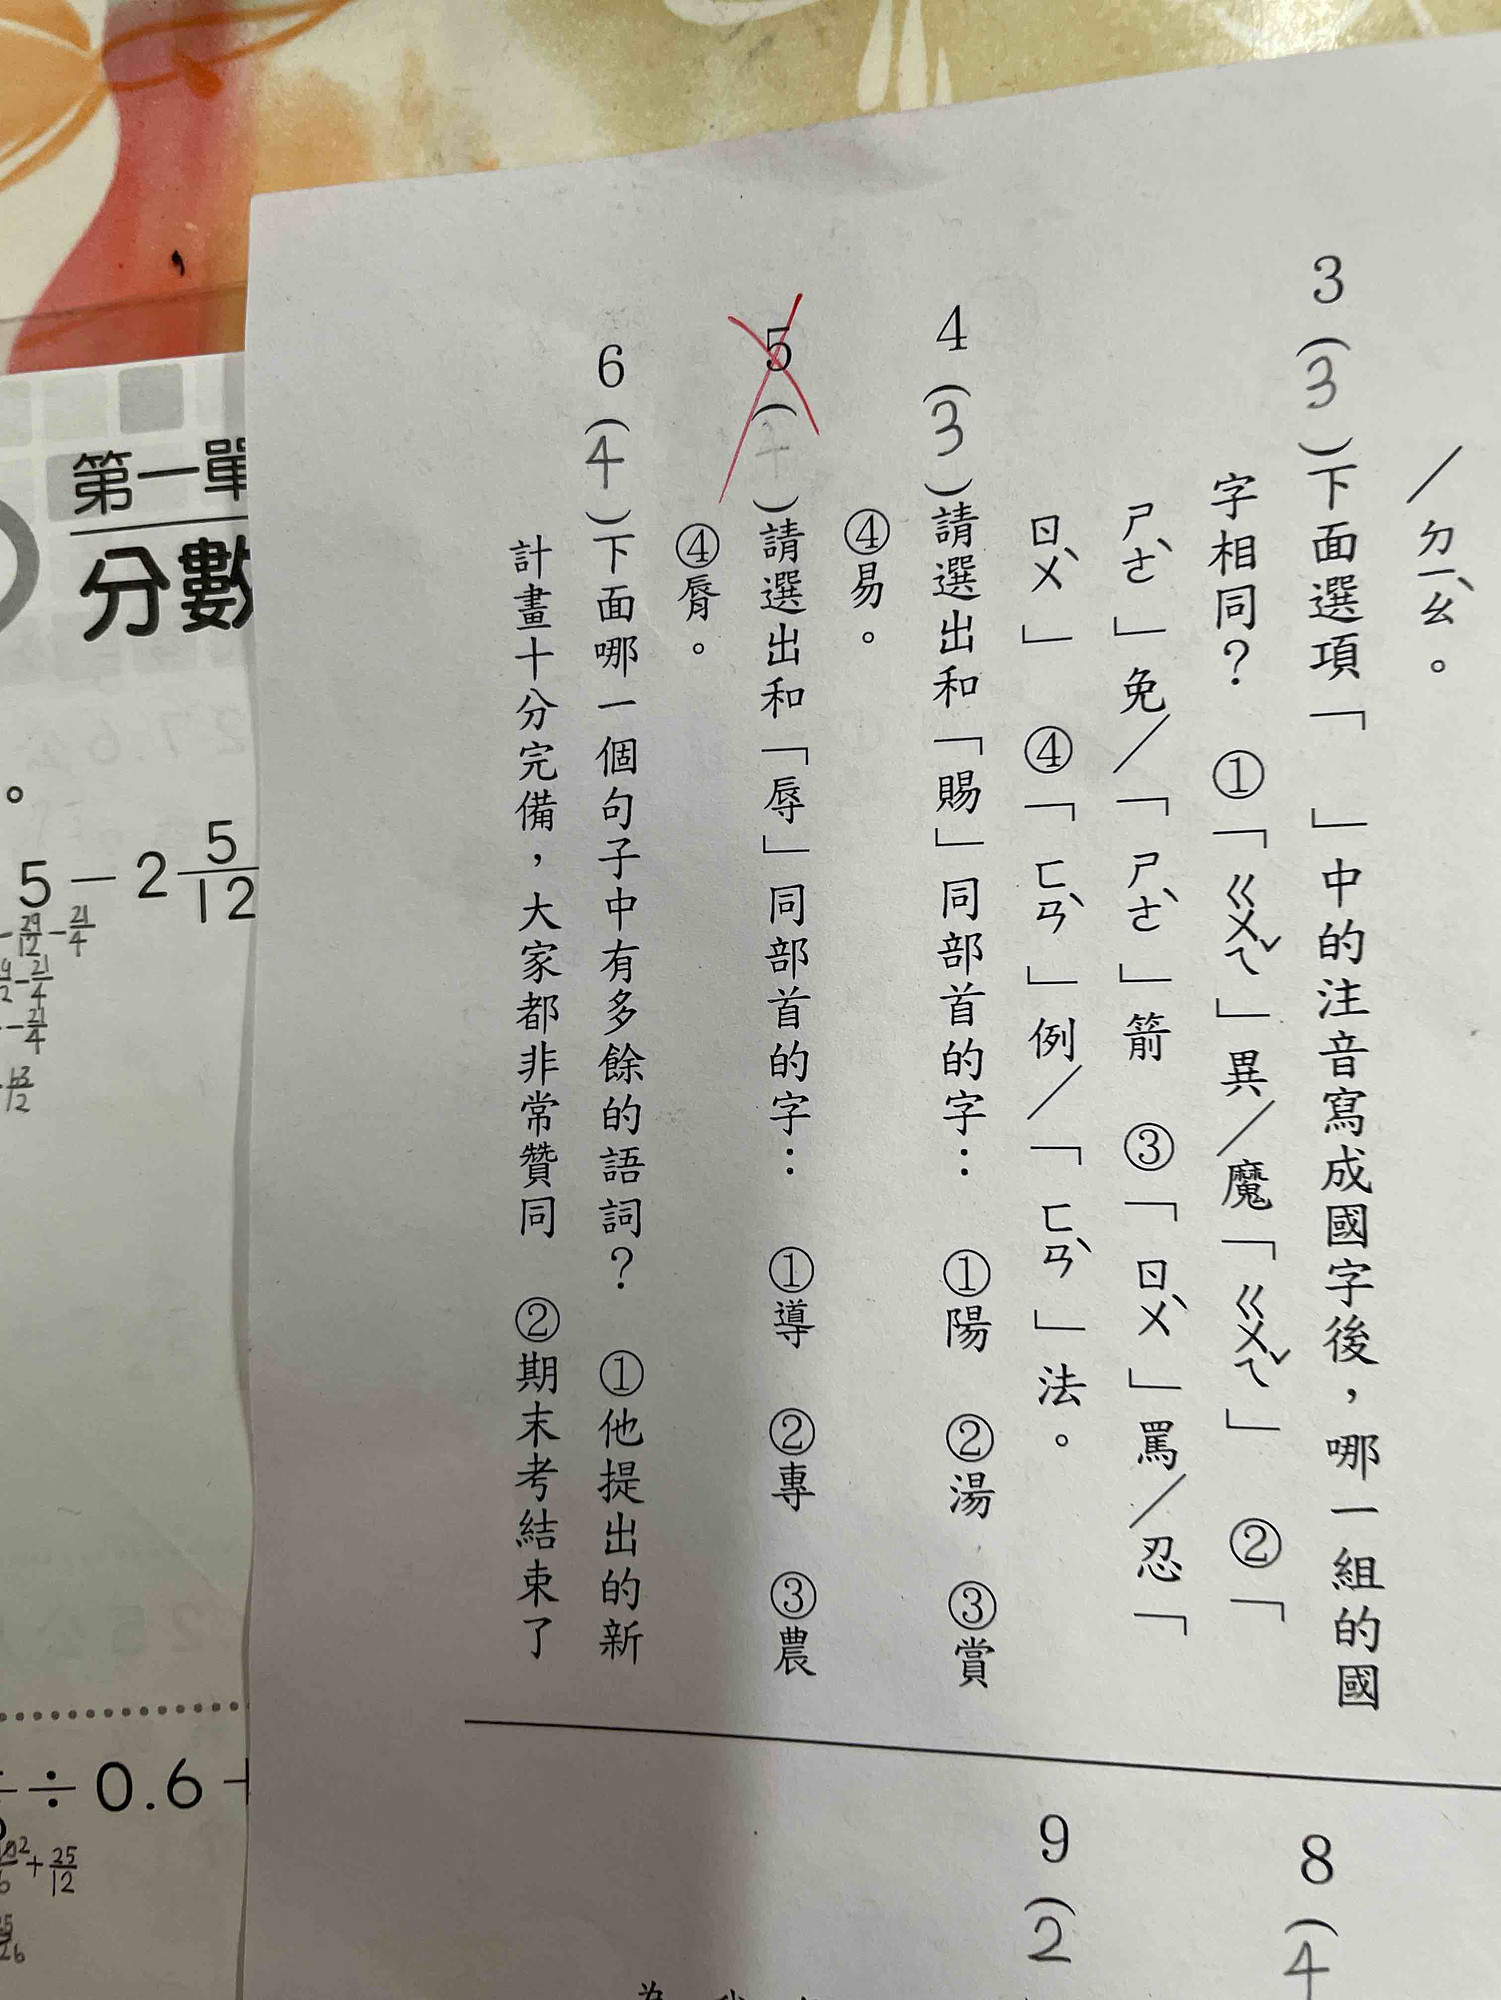 ／ㄉㄧㄠˋ。
3（3）下面選項「　」中的注音寫成國字後，哪一組的國
字相同？　①「ㄍㄨㄟˇ」異／魔「ㄍㄨㄟˇ」　②「
ㄕㄜˋ」免／「ㄕㄜˋ」箭　③「ㄖㄨˋ」罵／忍「
ㄖㄨˋ」　④「ㄈㄢˋ」例／「ㄈㄢˋ」法。
4（3）請選出和「賜」同部首的字：　①陽　②湯　③賞
④易。
5（4）請選出和「辱」同部首的字：　①導　②專　③農
④脣。
6（4）下面哪一個句子中有多餘的語詞？　①他提出的新
計畫十分完備，大家都非常贊同　②期末考結束了
8（4
9（2
第一單
分數
。
5－2 5/12
-29/12-21/4
-21/4
-21/4
63/12
÷0.6＋
+25/12